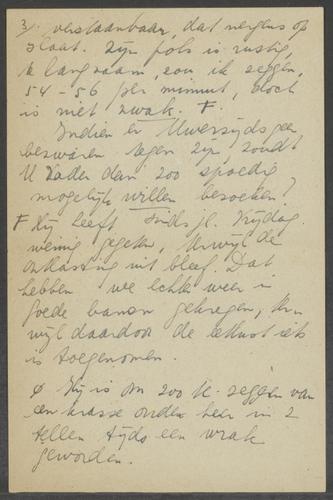 3/. verstaanbaar, dat nergens op
slaat. Zijn pols is rustig,
te langzaam, zou ik zeggen,
54 – 56 per minuut, doch
is niet zwak. F.
Indien er Uwerzijds geen
bezwaren tegen zijn, zoudt
U Vader dan zoo spoedig
mogelijk willen bezoeken?
F Hij heeft sinds j.l. Vrijdag
weinig gegeten, terwijl de
ontlasting uit bleef. Dat
hebben we echter weer in
goede banen gekregen, ter-
wijl daardoor de eetlust iets
is toegenomen.
ø Hij is om zoo te zeggen van
een krasse oude heer in 2
tellen tijds een wrak
geworden.